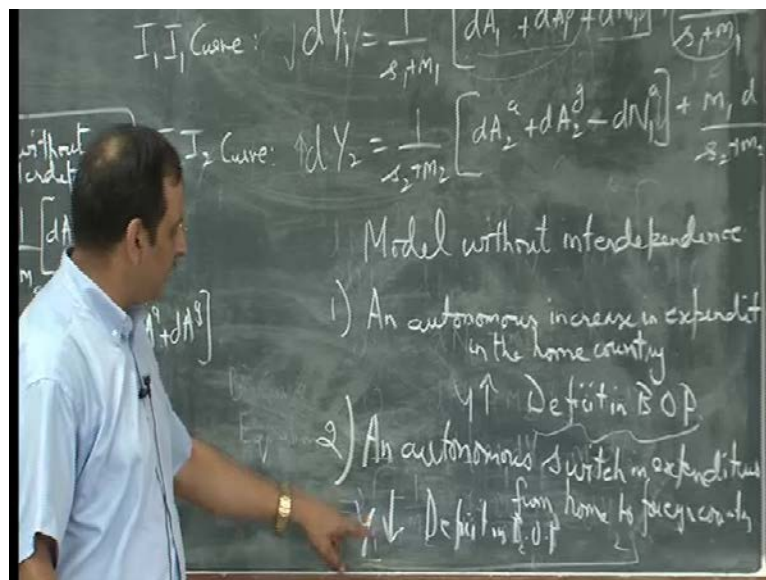 I₁ I₁ Curve: ↓ dY₁ = 1/(s₁+m₁) [dA₁ + dA₁ᵍ + dN₁ᵃ] / s₁+m₁
without
I₂ Curve: ↑ dY₂ = 1/(s₂+m₂) [dA₂ᵃ + dA₂ᵍ - dN₁ᵃ] + m₁ d/(s₂+m₂)
[dA
Model without interdependence
1) An autonomous increase in expendit
+dAᵍ]
in the home country
Y↑ Deficit in B O P
2) An autonomous switch in expenditure
from home to foreign country
Y↓ Deficit in B.O.P